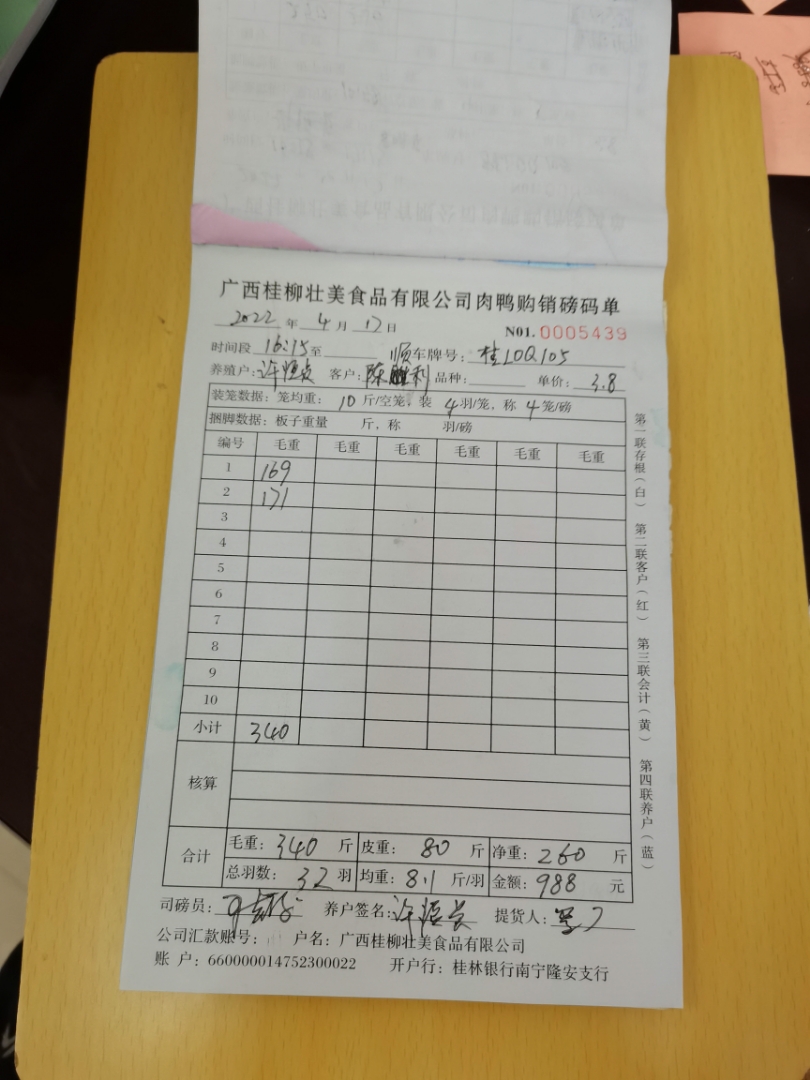 广西桂柳壮美食品有限公司肉鸭购销磅码单
2022 年 4 月 17 日 N01. 0005439
时间段 16:15 至 顺 车牌号: 桂L0Q105
养殖户: 许恒 客户: 陈胜利 品种: 单价: 3.8
装笼数据: 笼均重: 10 斤/空笼, 装 4 羽/笼, 称 4 笼/磅
捆脚数据: 板子重量 斤, 称 羽/磅
编号 毛重 毛重 毛重 毛重 毛重 毛重
1 169
2 171
3
4
5
6
7
8
9
10
小计 340
核算
合计 毛重: 340 斤 皮重: 80 斤 净重: 260 斤
总羽数: 32 羽 均重: 8.1 斤/羽 金额: 988 元
司磅员: 养户签名: 许恒 提货人:
公司汇款账号: 户名: 广西桂柳壮美食品有限公司
账 户: 660000014752300022 开户行: 桂林银行南宁隆安支行
第一联存根(白) 第二联客户(红) 第三联会计(黄) 第四联养户(蓝)